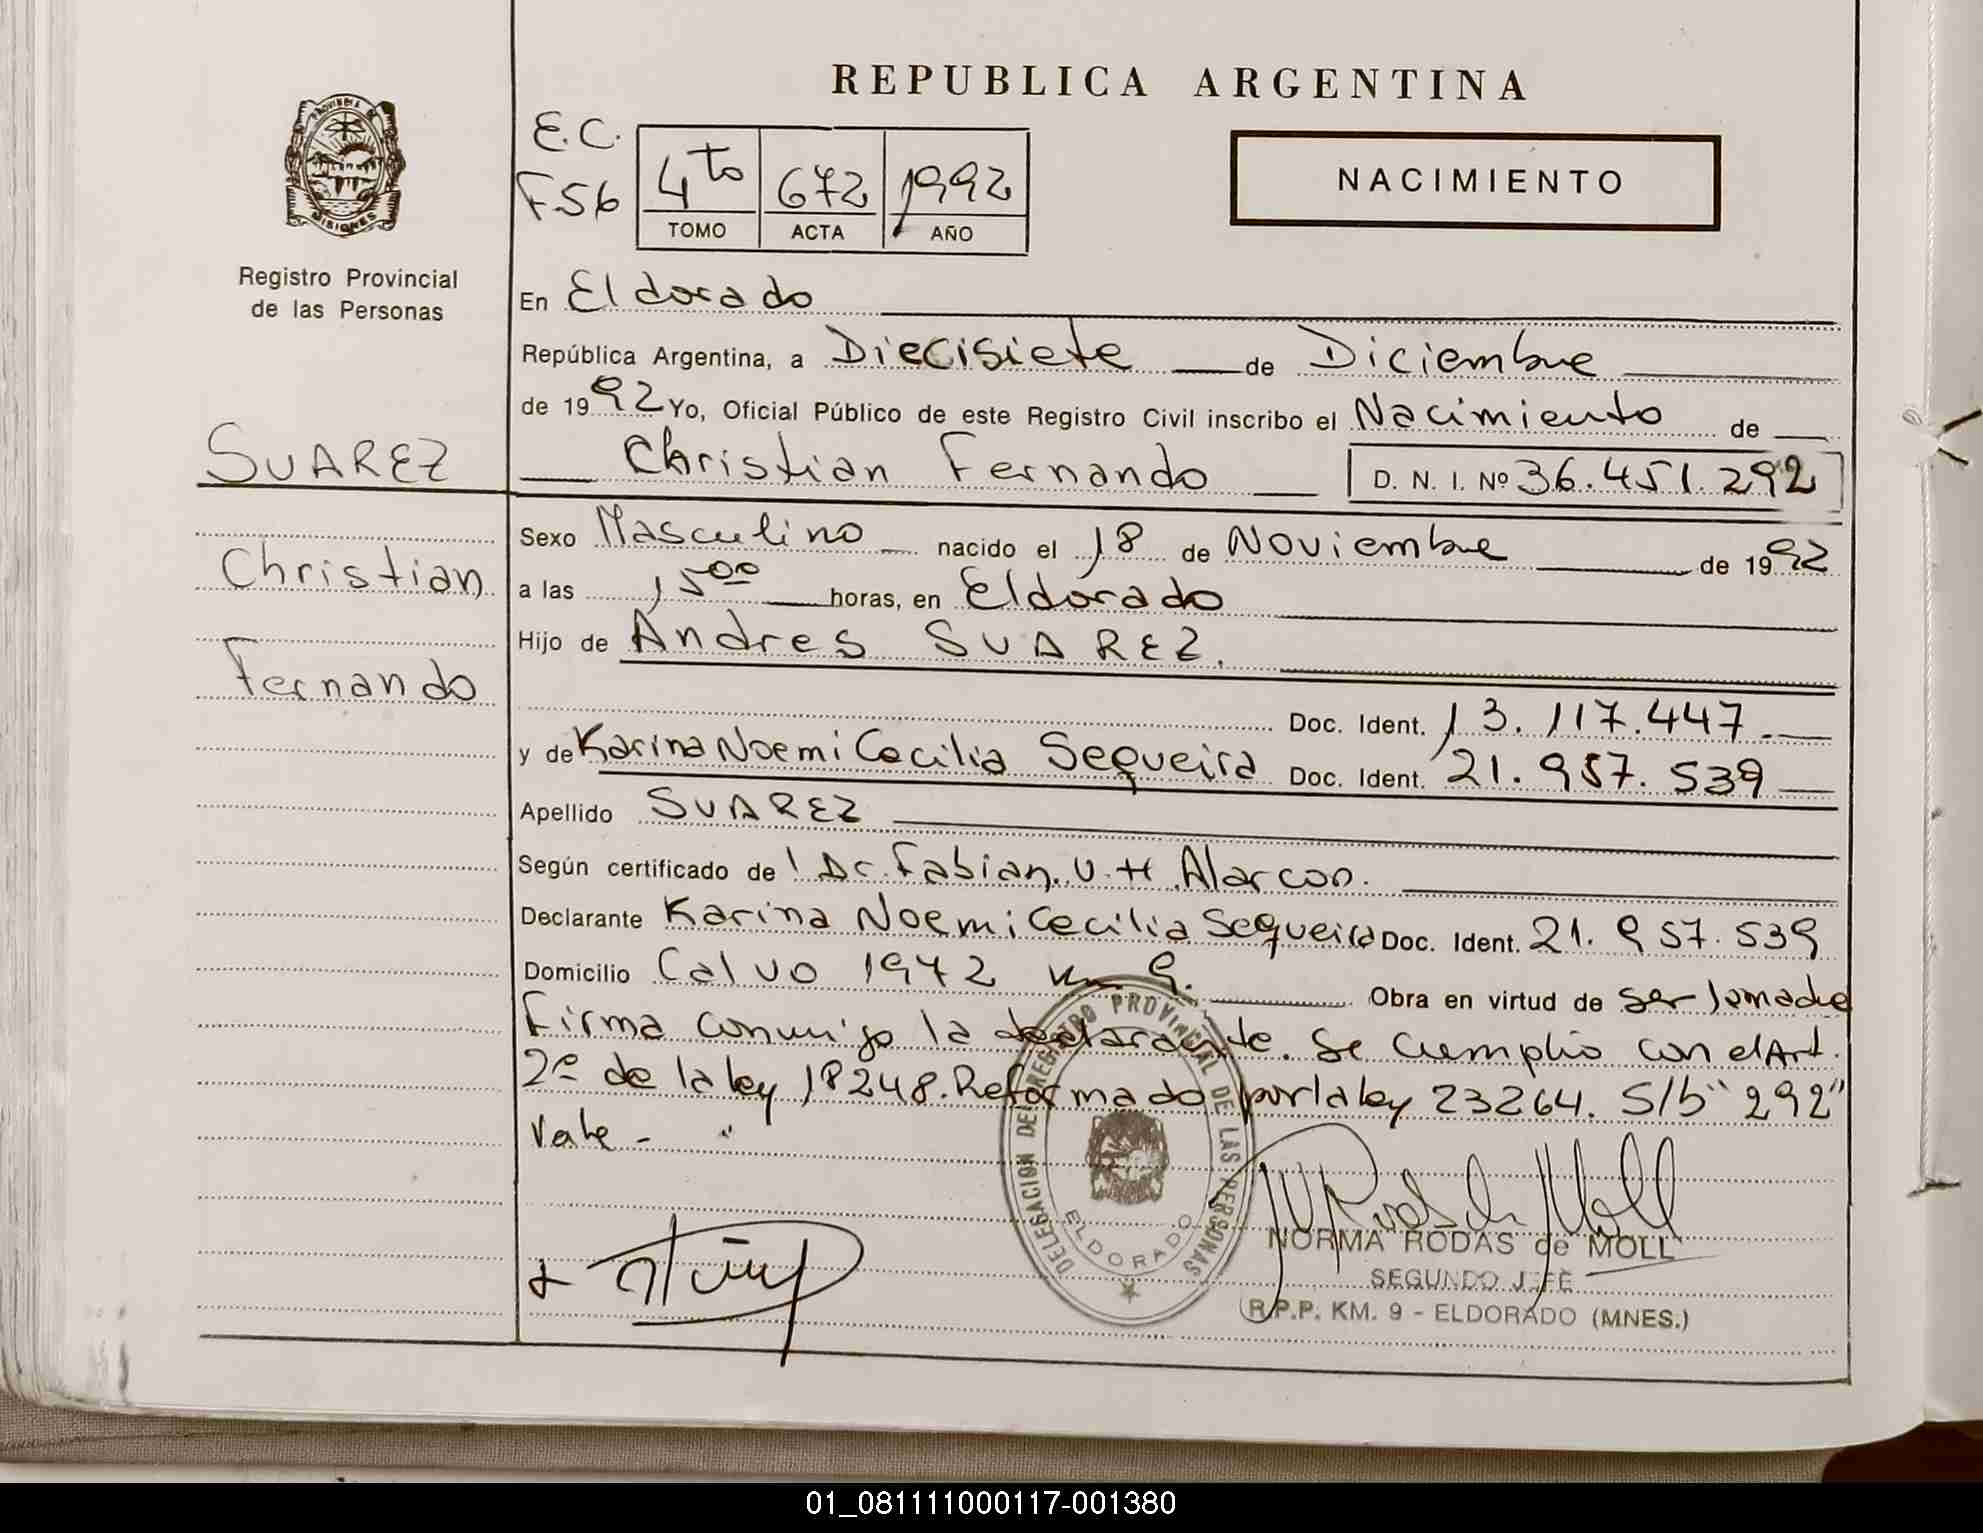 REPUBLICA ARGENTINA
PROVINCIA DE
MISIONES
Registro Provincial
de las Personas
E.C.
F56
4to 672 1992
TOMO ACTA AÑO
NACIMIENTO
En Eldorado
República Argentina, a Diecisiete de Diciembre
de 1992 Yo, Oficial Público de este Registro Civil inscribo el Nacimiento de
SUAREZ
Christian Fernando D. N. I. Nº 36.451.292
Sexo Masculino nacido el 18 de Noviembre de 1992
Christian
a las 15 00 horas, en Eldorado
Hijo de Andres SUAREZ.
Fernando
Doc. Ident. 13.117.447
y de Karina Noemi Cecilia Sequeira Doc. Ident. 21.957.539
Apellido SUAREZ
Según certificado de Dr. Fabian. U. H. Alarcon.
Declarante Karina Noemi Cecilia Sequeira Doc. Ident. 21.957.539
Domicilio Calvo 1942 Km 9. Obra en virtud de ser la madre
Firma conmigo la declarante. Se cumplio con el Art.
2º de la ley 18248. Reformado por la ley 23264. S/b "292"
Vale -
DELEGACION DEL REGISTRO PROVINCIAL DE LAS PERSONAS
ELDORADO
NORMA RODAS de MOLL
SEGUNDO JEFE
R.P.P. KM. 9 - ELDORADO (MNES.)
01_081111000117-001380